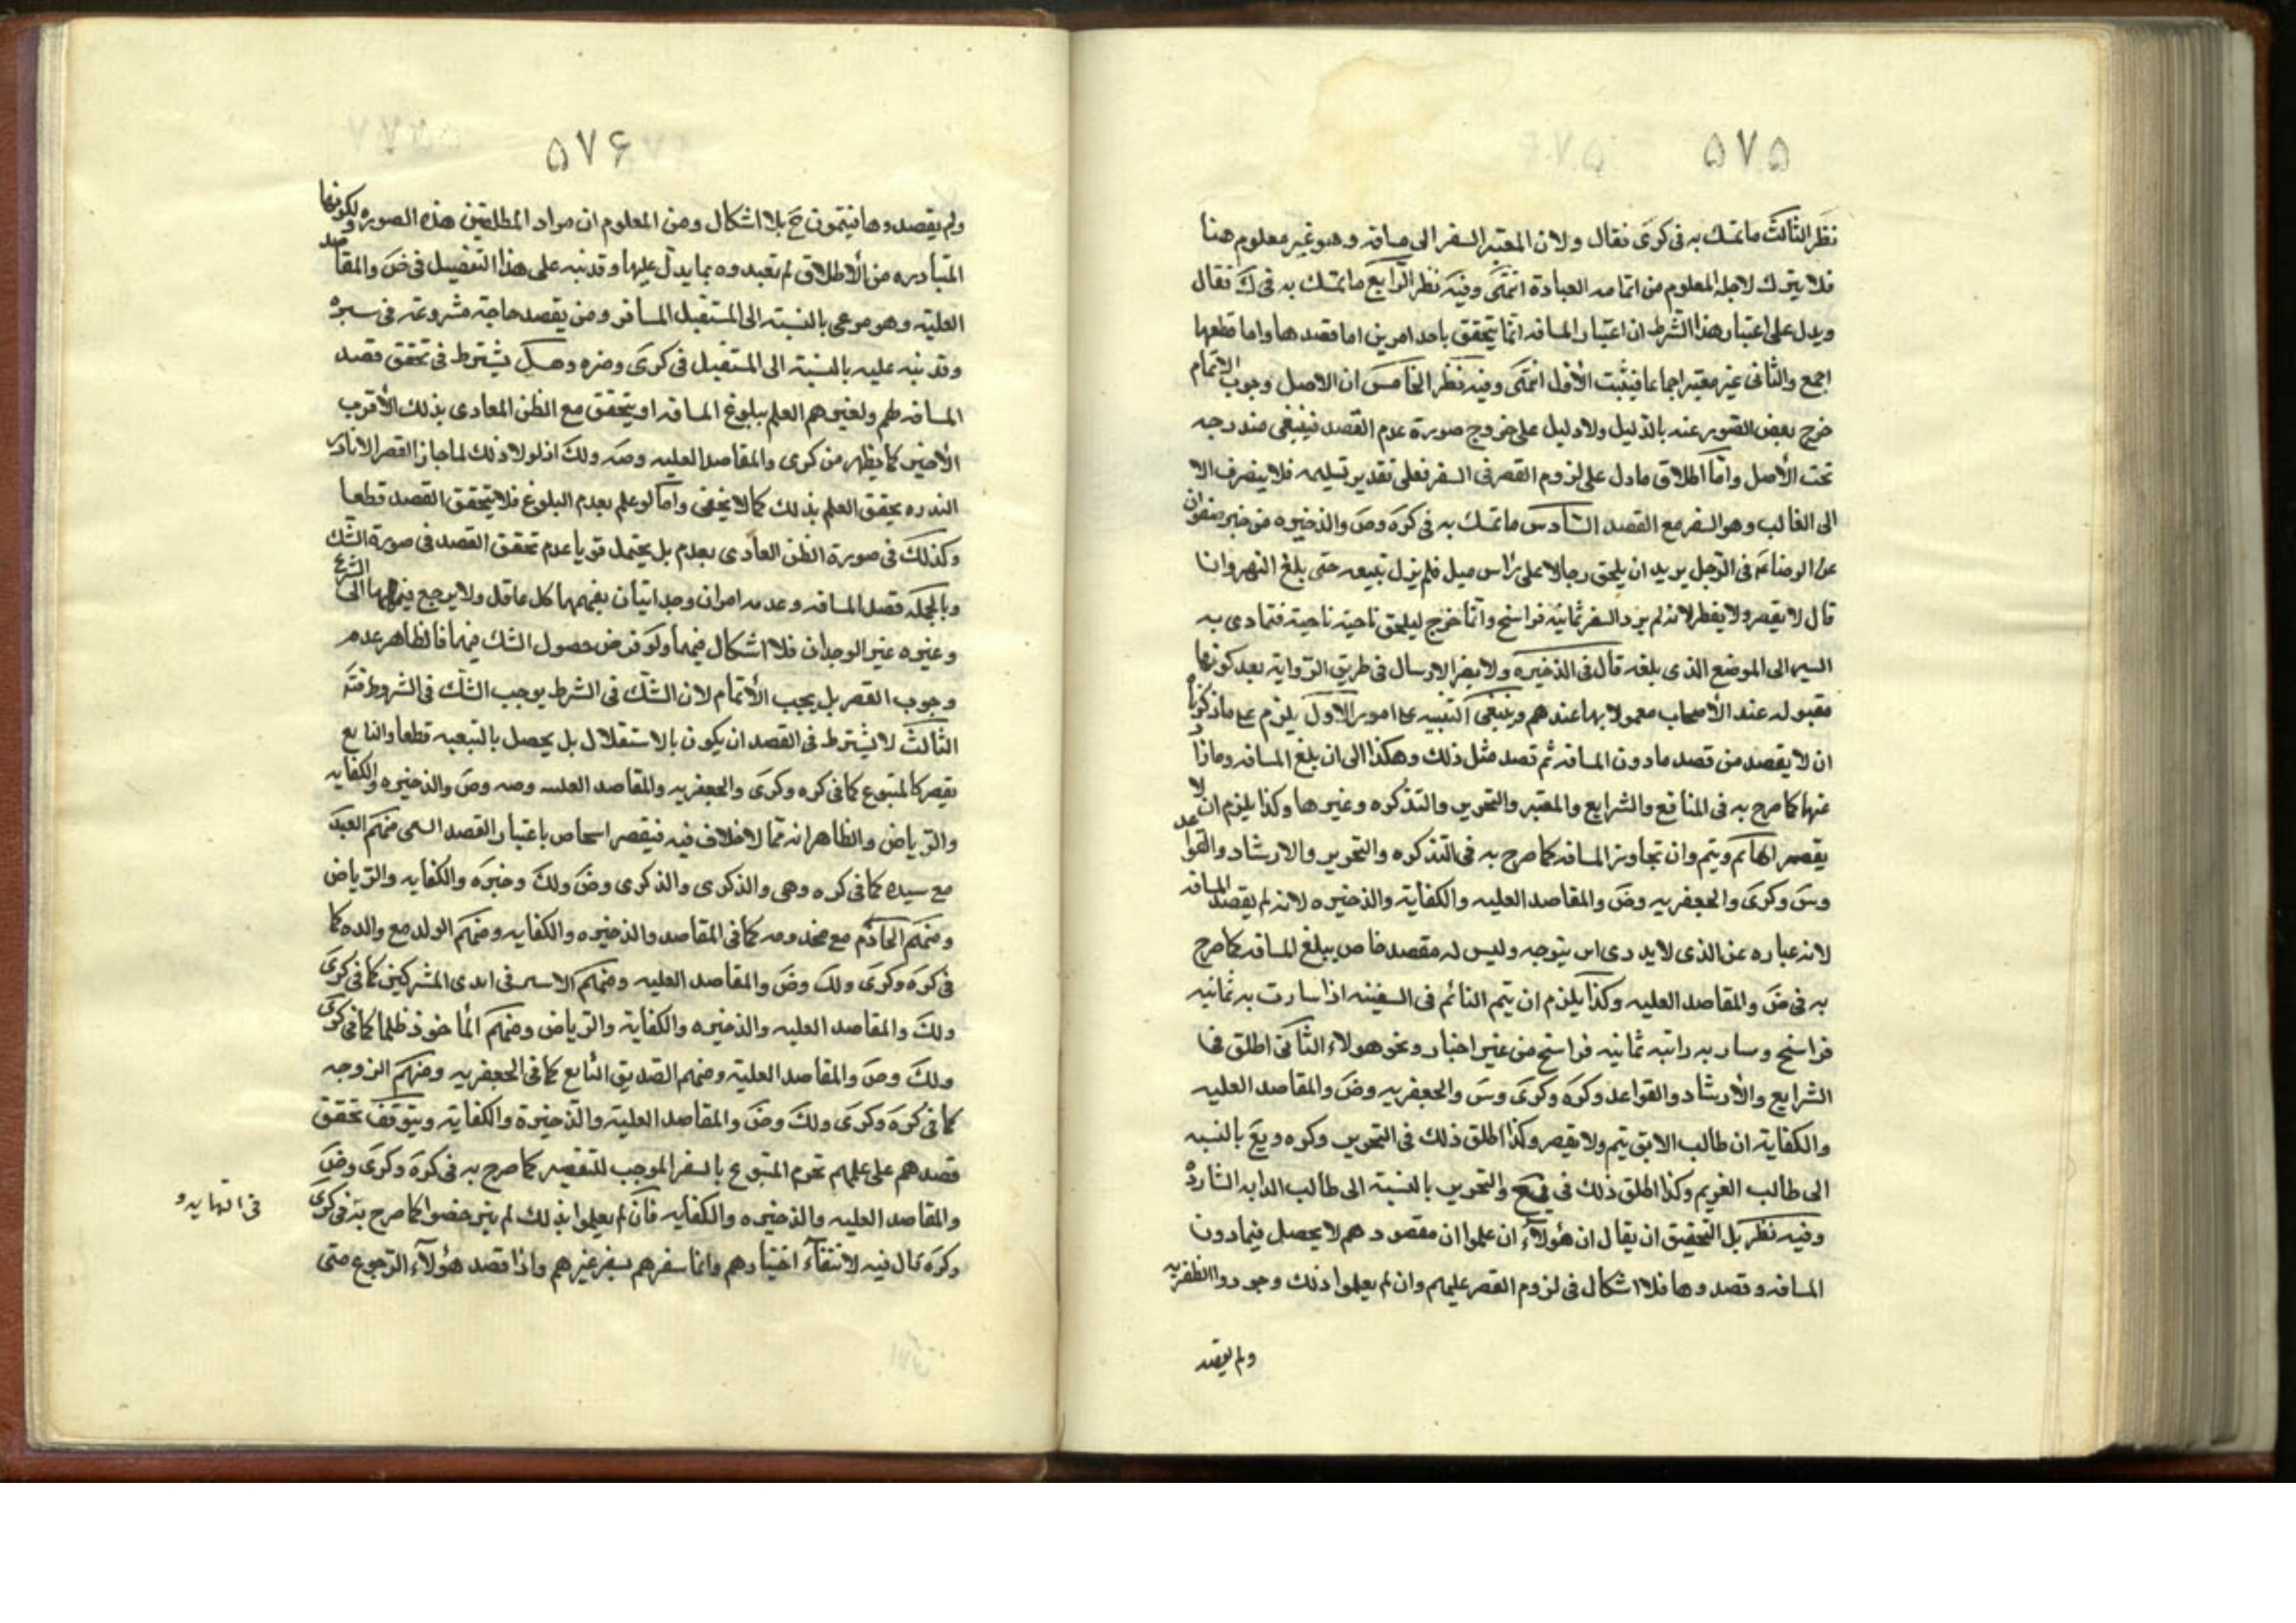 ۵۷۵
نظر الثالث ما تمسك به فى كرى فقال ولان المعتبر السفر الى مسافه وهو غير معلوم هنا
فلا يترك لاجله المعلوم من اتمامه العبادة انتهى وفيه نظر الرابع ما تمسك به فى ك فقال
ويدل على اعتبار هذا الشرط ان اعتبار المسافه انما يتحقق باحد امرين اما قصدها واما قطعها
اجمع والثانى غير معتبر اجماعا فيثبت الأول انتهى وفيه نظر الخامس ان الاصل وجوب الاتمام
خرج بعض الصور عنه بالدليل ولا دليل على خروج صورة عدم القصد فينبغى مندرجه
تحت الأصل واما اطلاق ما دل على لزوم القصر فى السفر فعلى تقدير تسليمه فلا ينصرف الا
الى الغالب وهو السفر مع القصد السادس ما تمسك به فى كره وض والذخيره من خبر صفوان
عن الرضا عم فى الرجل يريد ان يلحق رجلا على راس ميل فلم يزل يتبعه حتى بلغ النهروان
قال لا يقصر ولا يفطر لانه لم يرد السفر ثمانيه فراسخ وانما خرج ليلحق ناحية ناحية فتمادى به
السير الى الموضع الذى بلغه قال فى الذخيره ولا يضر الارسال فى طريق الروايه بعد كونها
مقبوله عند الأصحاب معمولا بها عندهم وينبغى التنبيه على امور الاول يلزم على ما ذكرناه
ان لا يقصد من قصد مادون المسافه ثم قصد مثل ذلك وهكذا الى ان بلغ المسافه وما زاد
عنها كما صرح به فى المنافع والشرايع والمعتبر والتحرير والتذكره وغيرها وكذا يلزم ان لا
يقصر الهائم ويتم وان تجاوز المسافه كما صرح به فى التذكره والتحرير والارشاد والقواعد
وس وكرى والجعفريه وض والمقاصد العليه والكفاية والذخيره لانه لم يقصد المسافه
لانه عباره عن الذى لا يدرى اين يتوجه وليس له مقصد خاص يبلغ المسافه كما صرح
به فى ض والمقاصد العليه وكذا يلزم ان يتم النائم فى السفينه اذا سارت به ثمانيه
فراسخ وسار به دابته ثمانيه فراسخ من غير اختيار ونحو هولاء الثانى اطلق فى
الشرايع والأرشاد والقواعد وكره وكرى وس والجعفريه وض والمقاصد العليه
والكفاية ان طالب الابق يتم ولا يقصر وكذا اطلق ذلك فى التحرير وكره ويع بالنسبه
الى طالب الغريم وكذا اطلق ذلك فى يع والتحرير بالنسبة الى طالب الدابه الشارده
وفيه نظر بل التحقيق ان يقال ان هؤلاء ان علموا ان مقصودهم لا يحصل فيما دون
المسافه وقصدوها فلا اشكال فى لزوم القصر عليهم وان لم يعلموا ذلك وجوزوا الظفر به
ولم يقصد
۵۷۶
ولم يقصدوها فيتمون ح بلا اشكال ومن المعلوم ان مراد المطلقين هذه الصوره ولكونها
المتبادره من الأطلاق لم تقيدوه بما يدل عليها وقد نبه على هذا التفصيل فى ض والمقاصد
العليه وهو مرعى بالنسبه الى المستقبل المسافر ومن يقصد حاجة مشروعه فى سيره
وقد نبه عليه بالنسبة الى المستقبل فى كرى وغيره وهل يشترط فى تحقق قصد
المسافه لهم ولغيرهم العلم ببلوغ المسافه او يتحقق مع الظن العادى بذلك الأقرب
الأخير كما يظهر من كرى والمقاصد العليه وضه ولك اذ لولا ذلك لما جاز القصر الا نادرا
الندره تحقق العلم بذلك كما لا يخفى واما لو علم بعدم البلوغ فلا يتحقق القصد قطعا
وكذلك فى صورة الظن العادى بعدم بل يحتمل قويا عدم تحقق القصد فى صورة الشك
وبالجمله قصد المسافه وعدمه امران وجدانيان يفهمهما كل عاقل ولا يرجع فيهما الى الشرع
وغيره غير الوجدان فلا اشكال فيهما ولو فرض حصول الشك فيهما فالظاهر عدم
وجوب القصر بل يجب الأتمام لان الشك فى الشرط يوجب الشك فى المشروط فته
الثالث لا يشترط فى القصد ان يكون بالاستقلال بل يحصل بالتبعيه قطعا والتابع
يقصر كالمتبوع كما فى كره وكرى والجعفريه والمقاصد العليه وضه وض والذخيره والكفايه
والرياض والظاهر انه مما لا خلاف فيه فيقصر اشخاص باعتبار القصد السمى منهم العبد
مع سيده كما فى كره وهى والذكرى والذكرى وض ولك وخيره والكفايه والرياض
ومنهم الخادم مع مخدومه كما فى المقاصد والذخيره والكفايه ومنهم الولد مع والده كما
فى كره وكرى ولك وض والمقاصد العليه ومنهم الاسير فى ايدى المشركين كما فى كرى
ولك والمقاصد العليه والذخيره والكفاية والرياض ومنهم المأخوذ ظلما كما فى كرى
ولك وض والمقاصد العلية ومنهم الصديق التابع كما فى الجعفريه ومنهم الزوجه
كما فى كره وكرى ولك وض والمقاصد العلية والذخيرة والكفاية ويتوقف تحقق
قصدهم على علمهم تحرم المتبوع بالسفر الموجب للتقصير كما صرح به فى كره وكرى وض
والمقاصد العليه والذخيره والكفايه فان لم يعلموا بذلك لم يترخصوا كما صرح به فى كرى
وكره قال فيه لانتفاء اختيارهم وانما سفرهم بسفر غيرهم واذا قصد هؤلاء الرجوع متى
فى النهايه و